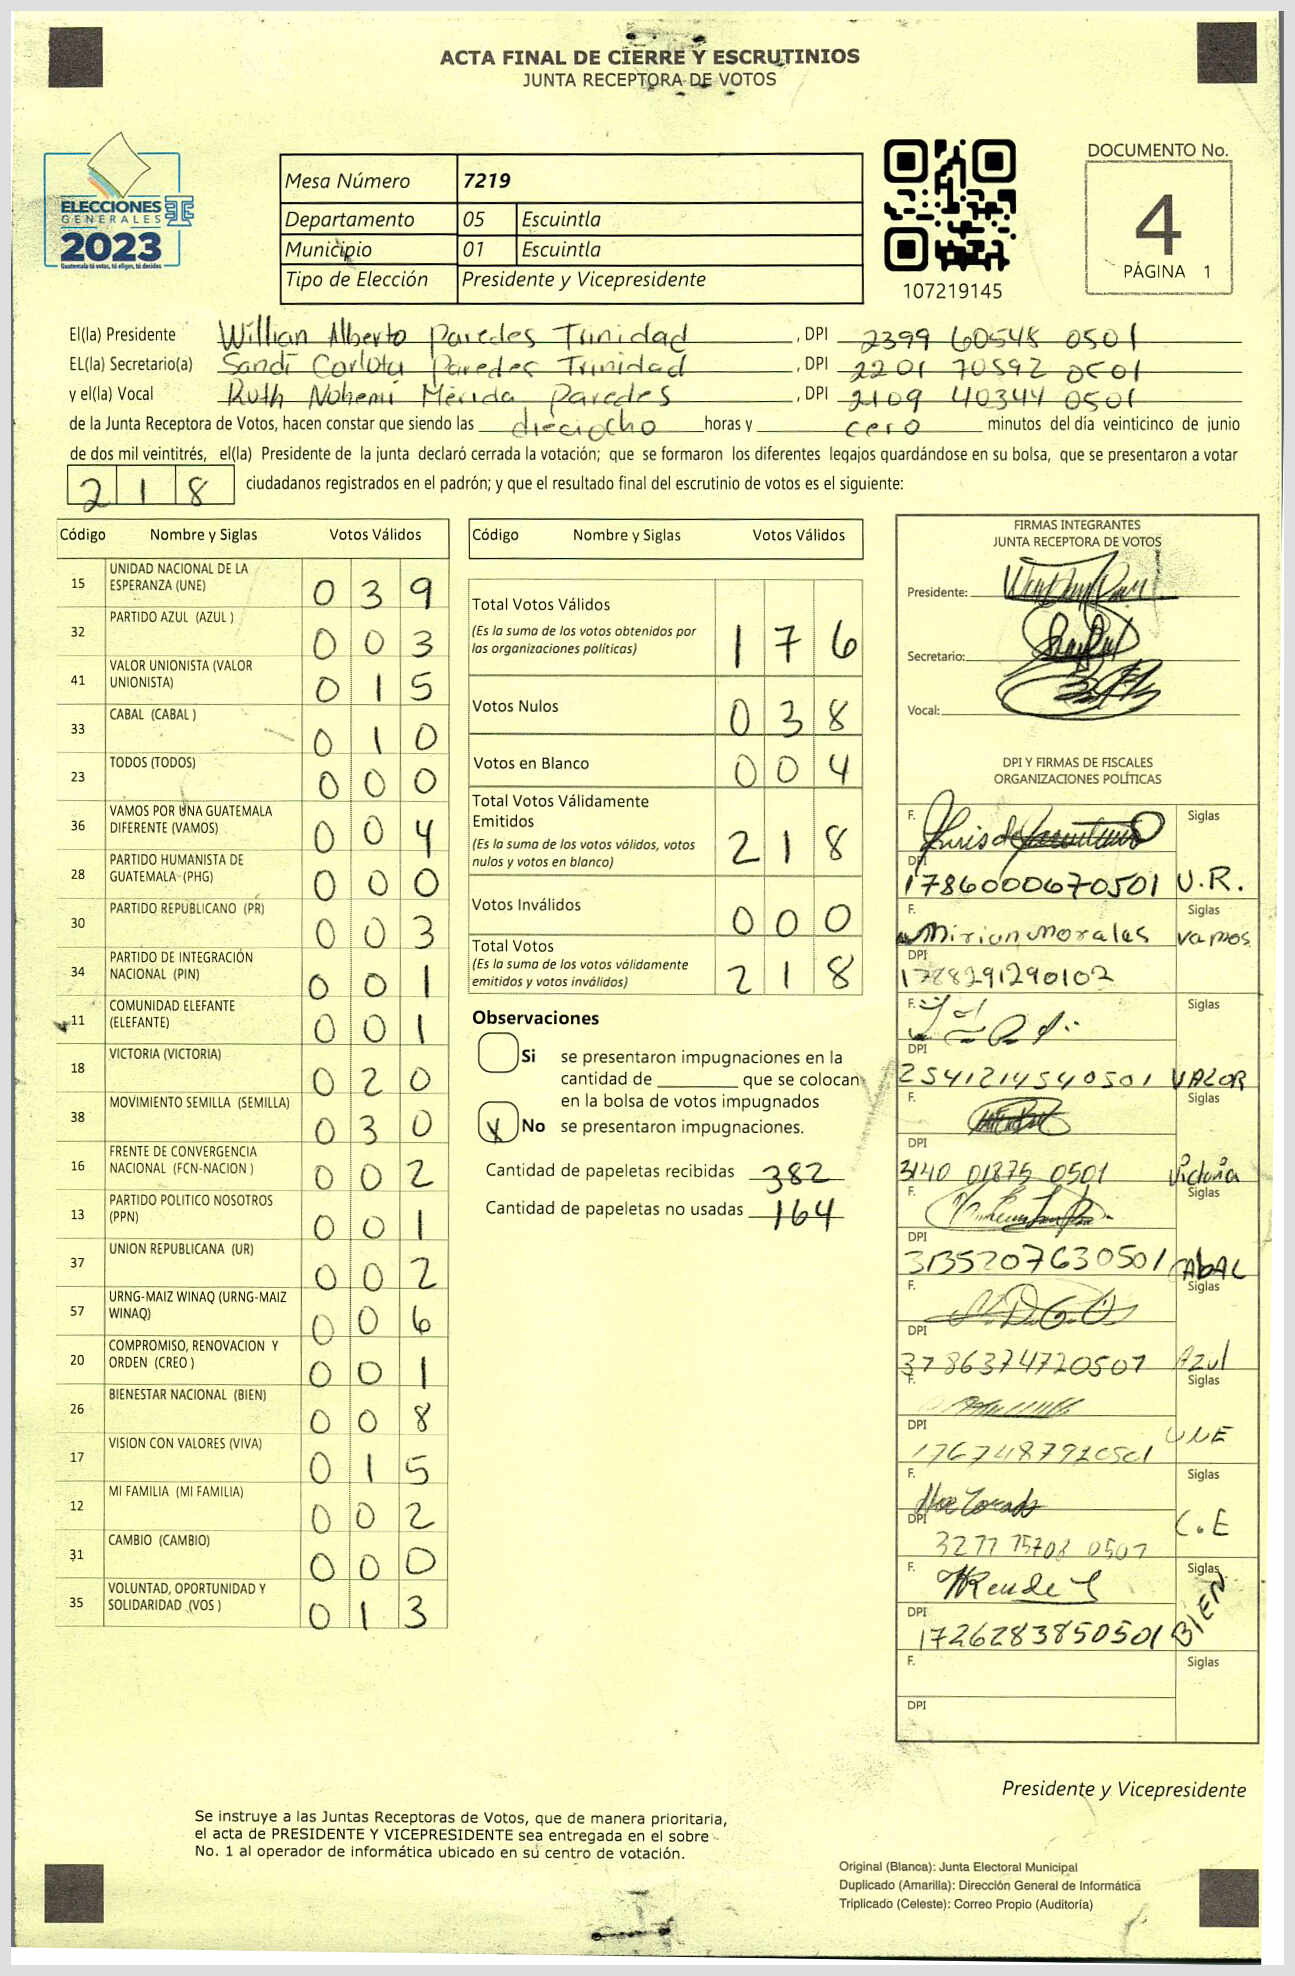 ACTA FINAL DE CIERRE Y ESCRUTINIOS
JUNTA RECEPTORA DE VOTOS
ELECCIONES
GENERALES
2023
Guatemala tú votas, tú eliges, tú decides
Mesa Número 7219
Departamento 05 Escuintla
Municipio 01 Escuintla
Tipo de Elección Presidente y Vicepresidente
107219145
DOCUMENTO No.
4
PÁGINA 1
El(la) Presidente Willian Alberto Paredes Trinidad, DPI 2399 60548 0501
EL(la) Secretario(a) Sandi Carlota Paredes Trinidad, DPI 2201 70592 0501
y el(la) Vocal Ruth Nohemí Mérida Paredes, DPI 2109 40344 0501
de la Junta Receptora de Votos, hacen constar que siendo las dieciocho horas y cero minutos del día veinticinco de junio
de dos mil veintitrés, el(la) Presidente de la junta declaró cerrada la votación; que se formaron los diferentes legajos guardándose en su bolsa, que se presentaron a votar
218 ciudadanos registrados en el padrón; y que el resultado final del escrutinio de votos es el siguiente:
Código Nombre y Siglas Votos Válidos
15 UNIDAD NACIONAL DE LA ESPERANZA (UNE) 039
32 PARTIDO AZUL (AZUL ) 003
41 VALOR UNIONISTA (VALOR UNIONISTA) 015
33 CABAL (CABAL ) 010
23 TODOS (TODOS) 000
36 VAMOS POR UNA GUATEMALA DIFERENTE (VAMOS) 004
28 PARTIDO HUMANISTA DE GUATEMALA (PHG) 000
30 PARTIDO REPUBLICANO (PR) 003
34 PARTIDO DE INTEGRACIÓN NACIONAL (PIN) 001
11 COMUNIDAD ELEFANTE (ELEFANTE) 001
18 VICTORIA (VICTORIA) 020
38 MOVIMIENTO SEMILLA (SEMILLA) 030
16 FRENTE DE CONVERGENCIA NACIONAL (FCN-NACION ) 002
13 PARTIDO POLITICO NOSOTROS (PPN) 001
37 UNION REPUBLICANA (UR) 002
57 URNG-MAIZ WINAQ (URNG-MAIZ WINAQ) 006
20 COMPROMISO, RENOVACION Y ORDEN (CREO ) 001
26 BIENESTAR NACIONAL (BIEN) 008
17 VISION CON VALORES (VIVA) 015
12 MI FAMILIA (MI FAMILIA) 002
31 CAMBIO (CAMBIO) 000
35 VOLUNTAD, OPORTUNIDAD Y SOLIDARIDAD (VOS ) 013
Código Nombre y Siglas Votos Válidos
Total Votos Válidos 176
(Es la suma de los votos obtenidos por
las organizaciones políticas)
Votos Nulos 038
Votos en Blanco 004
Total Votos Válidamente
Emitidos 218
(Es la suma de los votos válidos, votos
nulos y votos en blanco)
Votos Inválidos 000
Total Votos 218
(Es la suma de los votos válidamente
emitidos y votos inválidos)
Observaciones
Si se presentaron impugnaciones en la
cantidad de ________ que se colocan
en la bolsa de votos impugnados
X No se presentaron impugnaciones.
Cantidad de papeletas recibidas 382
Cantidad de papeletas no usadas 164
FIRMAS INTEGRANTES
JUNTA RECEPTORA DE VOTOS
Presidente:
Secretario:
Vocal:
DPI Y FIRMAS DE FISCALES
ORGANIZACIONES POLÍTICAS
F. Siglas
DPI
1786000670501 U.R.
F. Siglas
Mirian Morales Vamos
DPI
1788291290102
F. Siglas
DPI
2541214540501 VALOR
F. Siglas
DPI
3140 01875 0501 Victoria
F. Siglas
DPI
3135207630501 CAbAL
F. Siglas
DPI
3786374720501 Azul
F. Siglas
DPI
1767487920501 UNE
F. Siglas
DPI
C.E
F. Siglas
DPI
1726283850501 BIEN
F. Siglas
DPI
Presidente y Vicepresidente
Se instruye a las Juntas Receptoras de Votos, que de manera prioritaria,
el acta de PRESIDENTE Y VICEPRESIDENTE sea entregada en el sobre
No. 1 al operador de informática ubicado en su centro de votación.
Original (Blanca): Junta Electoral Municipal
Duplicado (Amarilla): Dirección General de Informática
Triplicado (Celeste): Correo Propio (Auditoría)